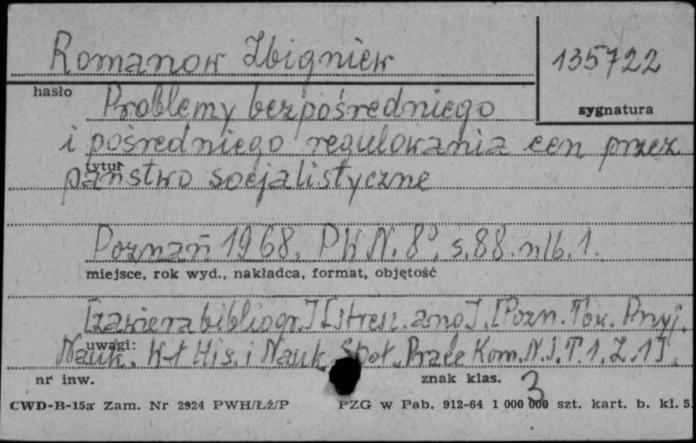 Romanow Zbigniew
135722
hasło
sygnatura
Problemy bezpośredniego
i pośredniego regulowania cen przez
tytuł
państwo socjalistyczne
Poznań 1968. PWN. 8°, s. 88. nlb. 1.
miejsce, rok wyd., nakładca, format, objętość
[zawiera bibliogr.] [stresz. ang]. [Pozn. Tow. Przyj.
uwagi:
Nauk. W-ł His. i Nauk Społ. Prace Kom. N. S. T. 1. Z. 1].
nr inw.
znak klas. 3
CWD-B-15a Zam. Nr 2924 PWH/Łż/P PZG w Pab. 912-64 1 000 000 szt. kart. b. kl. 5.